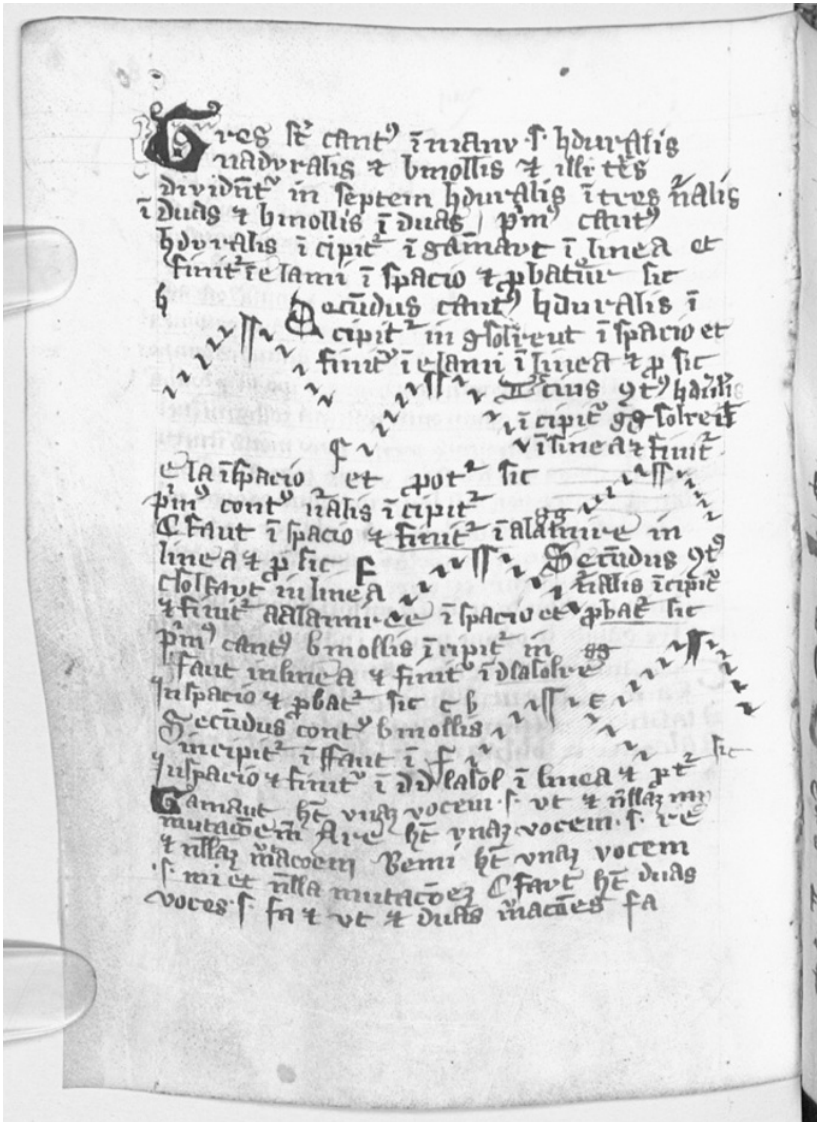 Tres st̄ cantꝰ ī manu ·s· hduralis
naduralis ⁊ bmollis ⁊ illi tēs
dividūtʳ in septem hduralis ī tres n̄alis
ī duas ⁊ bmollis ī duas / p̄mꝰ cantꝰ
hduralis ī cipitʳ ī gāmaut ī linea et
finitʳ ī elami ī spacio ⁊ ꝓbatur sic
h
Secūdus cantꝰ hduralis ī
cipitʳ in gsolreut ī spacio et
finitʳ ī elami ī linea ⁊ ꝓ sic
cius ꝯtꝰ
ī cipitʳ gg solreut
ī linea ⁊ finitʳ
ela ī spacio et ꝓotʳ sic
p̄mꝰ contꝰ n̄alis ī cipitʳ
gg
Cfaut ī spacio ⁊ finitʳ ī alamire in
linea ⁊ ꝓ sic F
Secūdus ꝯtꝰ
csolfaut in linea n̄alis īcipitʳ
⁊ finitʳ aalamire ī spacio et ꝓbatʳ sic
p̄mꝰ cantꝰ bmollis īcipitʳ in gg
ffaut in linea ⁊ finitʳ ī dlasolre
In spacio ⁊ ꝓbatʳ sic c h c
Secūdus contꝰ bmollis
incipitʳ ī ffaut ī f sic
In spacio ⁊ finitʳ ī dd lasol ī linea ⁊ ꝓtʳ
Gamaut ht̄ vnaꝫ vocem ·s· vt ⁊ n̄llaꝫ
mutacōem Are ht̄ vnaꝫ vocem ·s· re
⁊ n̄llaꝫ m̄acoem Bemi ht̄ vnaꝫ vocem
·s· mi et n̄lla mutacōeꝫ Cfaut ht̄ duas
voces ·s· fa ⁊ vt ⁊ duas m̄acōes fa